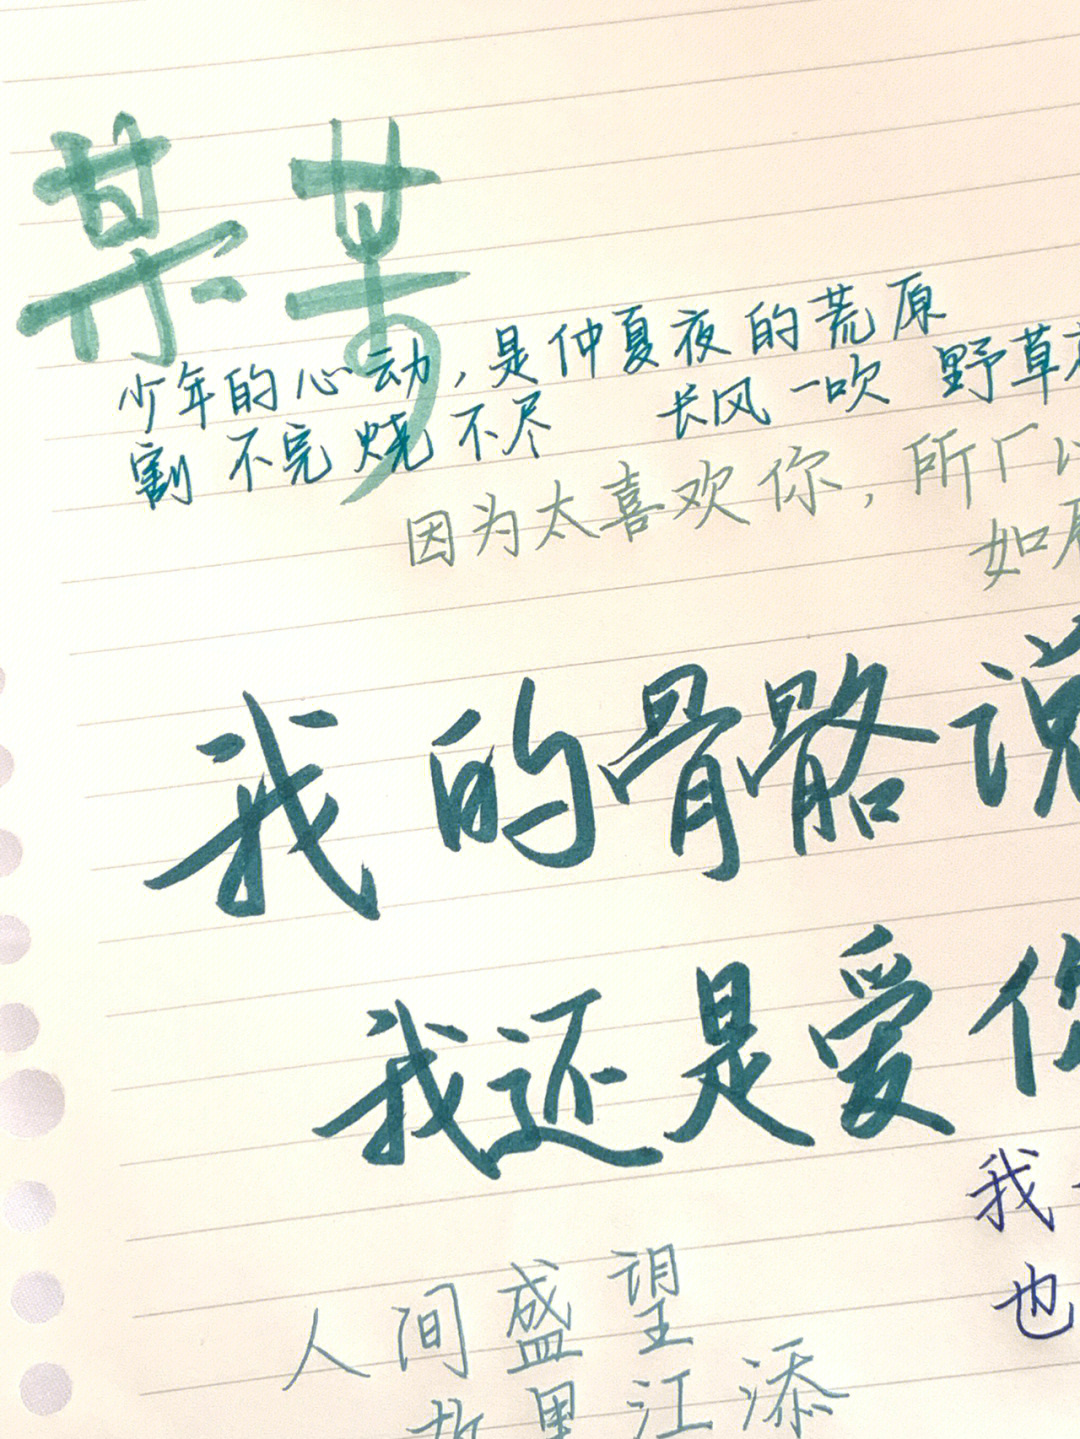 某某
少年的心动，是仲夏夜的荒原
割不完烧不尽 长风一吹 野草
因为太喜欢你，所
如
我的骨骼说
我还是爱你
我
也
人间盛望
江添